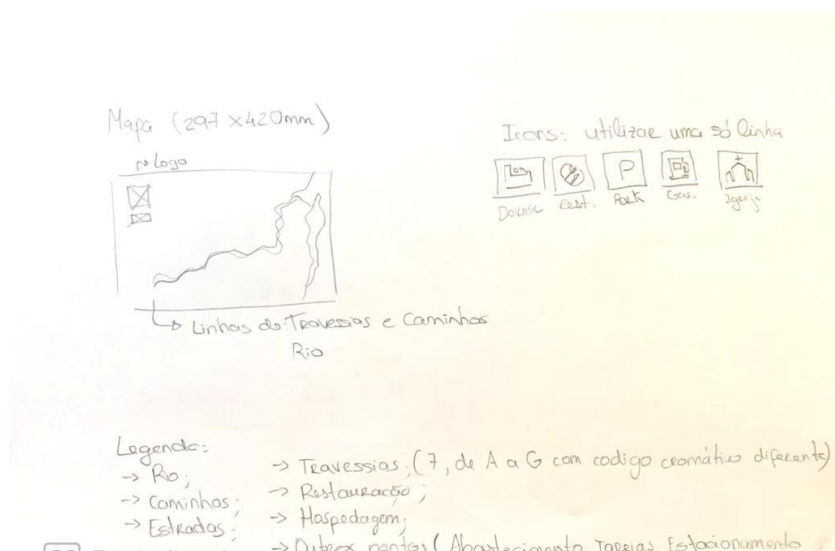 Mapa (297 x 420mm)
Logo
Linhas do: Travessias e Caminhos
Rio
Icons: utilizar uma só linha
P
Dormir Rest. Park Gas. Igreja
Legenda:
→ Rio;
→ Caminhos;
→ Estradas;
→ Travessias; (7, de A a G com codigo cromático diferente)
→ Restauração;
→ Hospedagem;
→ Outros pontos (Abastecimento, Igrejas, Estacionamento